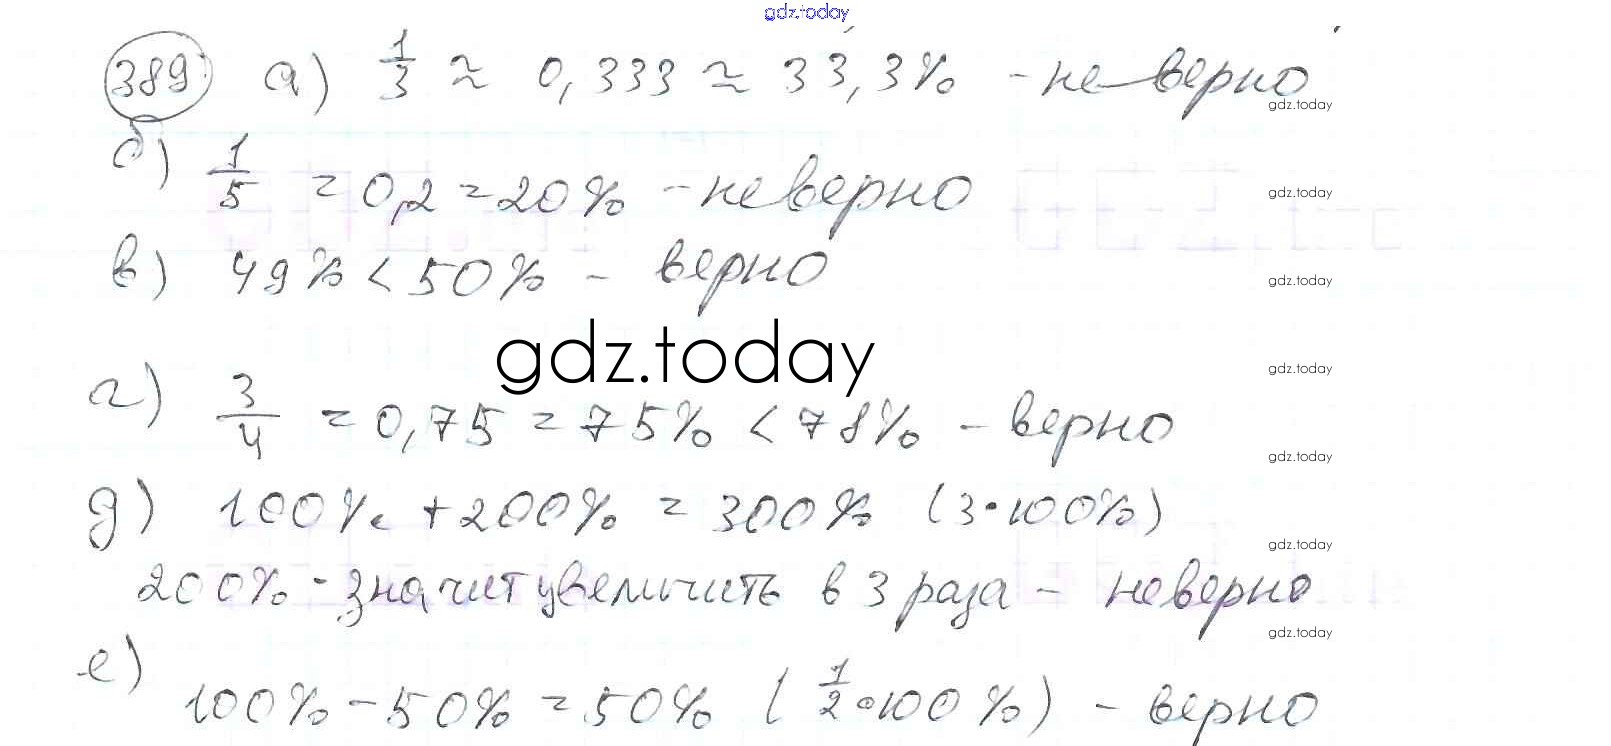 gdz.today
389 а) 1/3 ≈ 0,333 ≈ 33,3% - неверно
gdz.today
б) 1/5 = 0,2 = 20% - неверно
gdz.today
в) 49% < 50% - верно
gdz.today
gdz.today
г) 3/4 = 0,75 = 75% < 78% - верно
gdz.today
gdz.today
д) 100% + 200% = 300% (3·100%)
gdz.today
200% - значит увеличить в 3 раза - неверно
gdz.today
е) 100% - 50% = 50% (1/2·100%) - верно